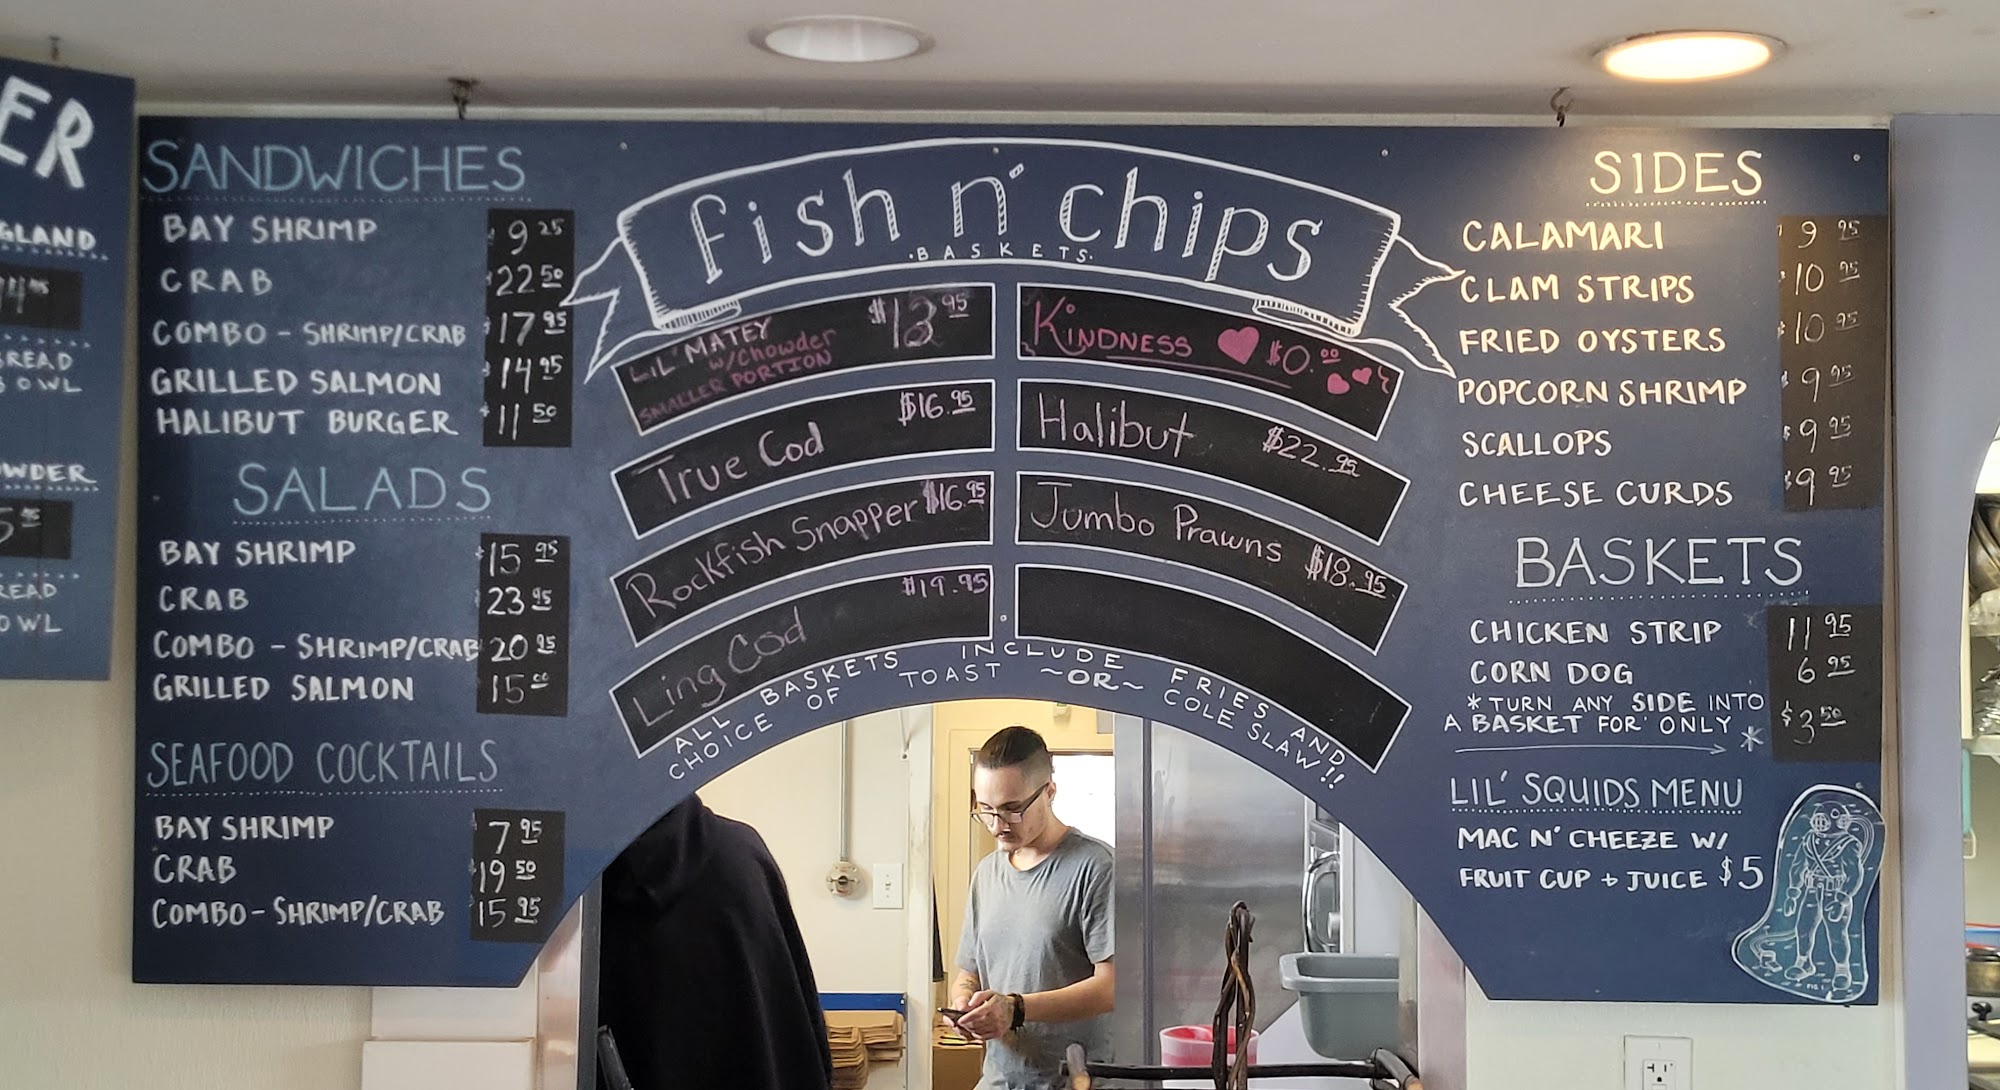 ER
GLAND
READ
OWL
WDER
READ
OWL
SANDWICHES
BAY SHRIMP $9 25
CRAB $22 50
COMBO - SHRIMP/CRAB $17 95
GRILLED SALMON $14 95
HALIBUT BURGER $11 50
SALADS
BAY SHRIMP $15 95
CRAB 23 95
COMBO - SHRIMP/CRAB 20 95
GRILLED SALMON 15 00
SEAFOOD COCKTAILS
BAY SHRIMP 7 95
CRAB $19 50
COMBO - SHRIMP/CRAB 15 95
fish n' chips
·BASKETS·
LIL' MATEY $13 95
w/Chowder
SMALLER PORTION
True Cod $16.95
Rockfish Snapper $16.95
Ling Cod $19.95
KINDNESS $0.00
Halibut $22.95
Jumbo Prawns $18.95
ALL BASKETS INCLUDE FRIES AND
CHOICE OF TOAST ~OR~ COLE SLAW!!
SIDES
CALAMARI 9 95
CLAM STRIPS 10 95
FRIED OYSTERS 10 95
POPCORN SHRIMP $9 95
SCALLOPS $9 95
CHEESE CURDS $9 95
BASKETS
CHICKEN STRIP 11 95
CORN DOG 6 95
*TURN ANY SIDE INTO
A BASKET FOR ONLY * $3 50
LIL' SQUIDS MENU
MAC N' CHEEZE W/
FRUIT CUP + JUICE $5
FIG. 1